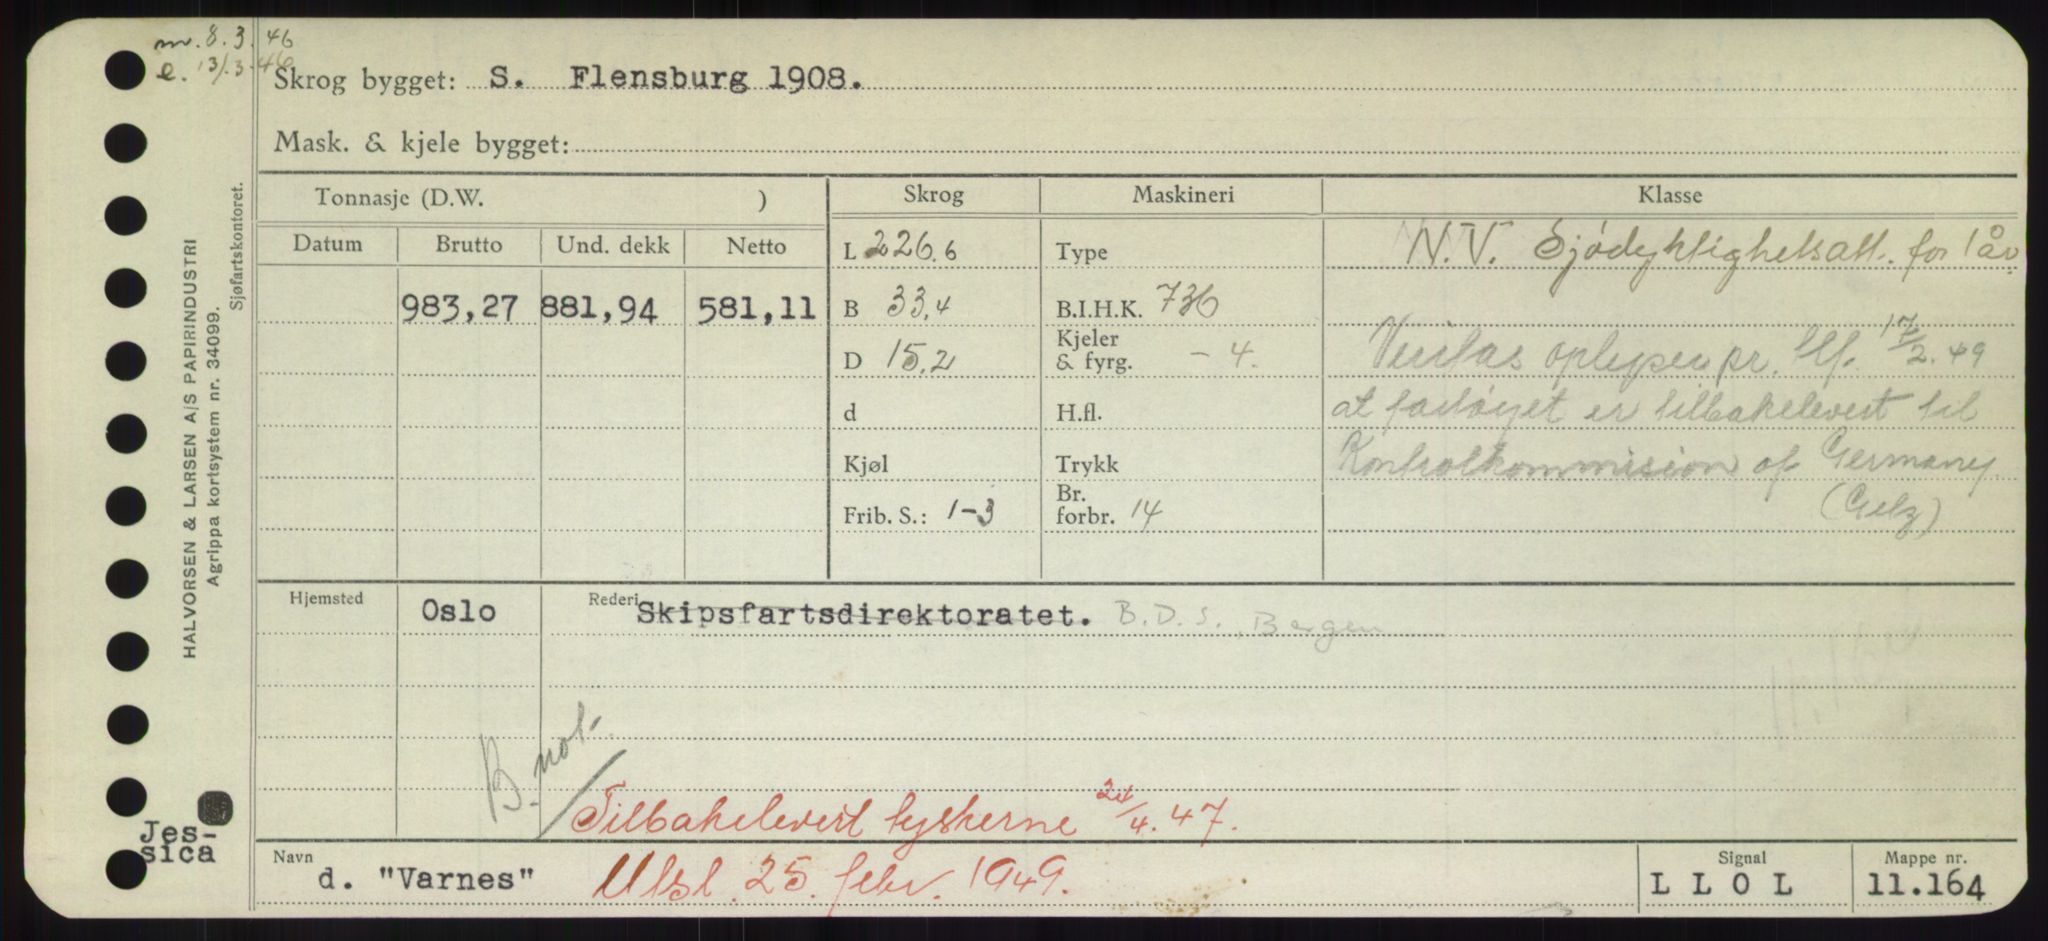 mv. 8.3.46
e. 13/3-46
Skrog bygget: S. Flensburg 1908.
Mask. & kjele bygget:
HALVORSEN & LARSEN A/S PAPIRINDUSTRI
Agrippa kortsystem nr. 34099.
Sjøfartskontoret.
Tonnasje (D.W. ) Skrog Maskineri Klasse
Datum Brutto Und. dekk Netto
983,27 881,94 581,11
L 226.6
B 33,4
D 15.2
d
Kjøl
Frib. S.: 1-3
Type
B.I.H.K. 736
Kjeler
& fyrg. - 4.
H.fl.
Trykk
Br.
forbr. 14
N.V. Sjødyktighetsatt. for 1 år
Veritas oplyser pr. tlf. 17/2.49
at fartøyet er tilbakelevert til
Kontrolkommision of Germany
Hjemsted Oslo Rederi Skipsfartsdirektoratet. B.D.S. Bergen
B. not.
Tilbakelevert tyskerne 24/4.47.
Jes-
sica
Navn d. "Varnes" Utsl. 25. febr. 1949.
Signal L L O L
Mappe nr. 11.164